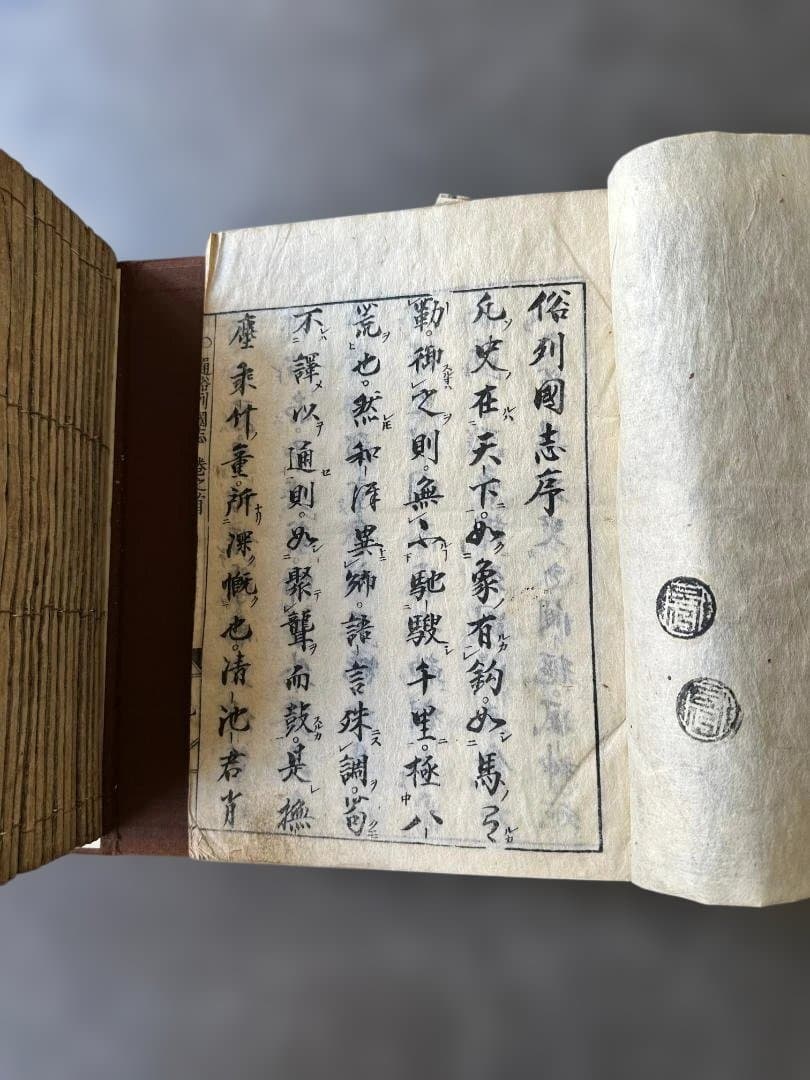 俗列國志序
凡史在天下。如象有鈎。如馬有
勒。御之則。無不馳驟千里。極八
荒也。然和漢異郷。語言殊調。苟
不譯以通則。如聚聾而鼓。是撫
塵乘竹童。所深慨也。清池君肖
通俗列國志 卷之首